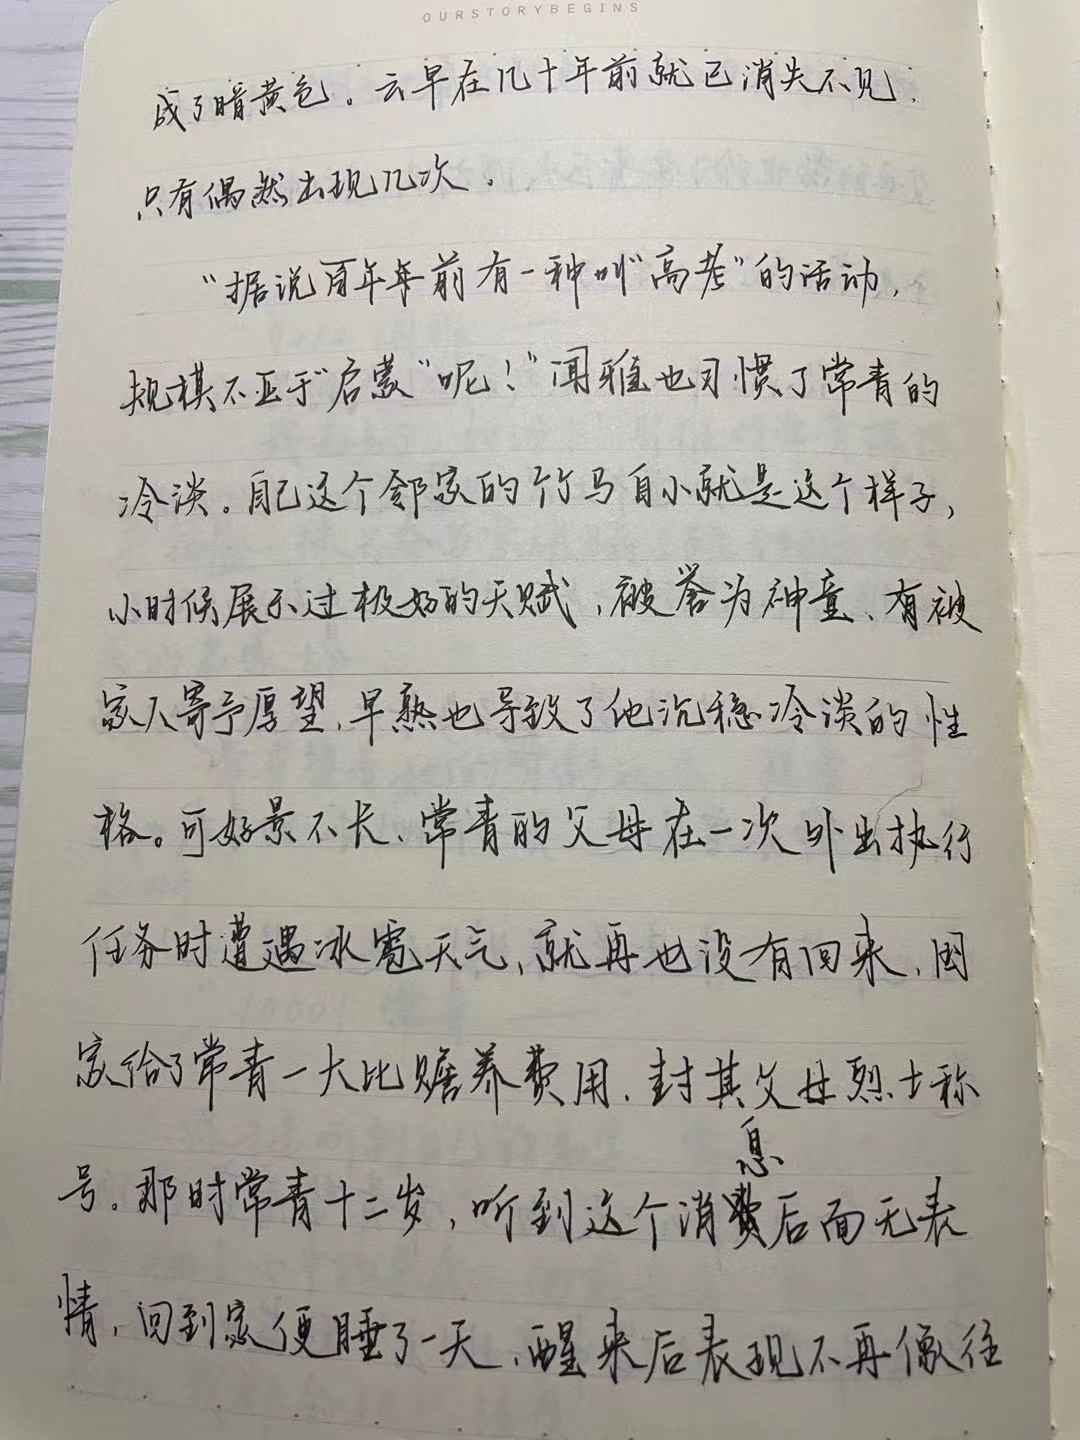 OURSTORYBEGINS
成了暗黄色。云早在几十年前就已消失不见,
只有偶然出现几次.
“据说百年年前有一种叫“高考”的活动,
规模不亚于“启蒙”呢!”闻雅也习惯了常青的
冷淡。自己这个邻家的竹马自小就是这个样子,
小时候展示过极好的天赋,被誉为神童、有被
家人寄予厚望,早熟也导致了他沉稳冷淡的性
格。可好景不长、常青的父母在一次外出执行
任务时遭遇冰雹天气,就再也没有回来,国
家给了常青一大比赡养费用.封其父母烈士称
号。那时常青十二岁,听到这个消息后面无表
情,回到家便睡了一天,醒来后表现不再像往